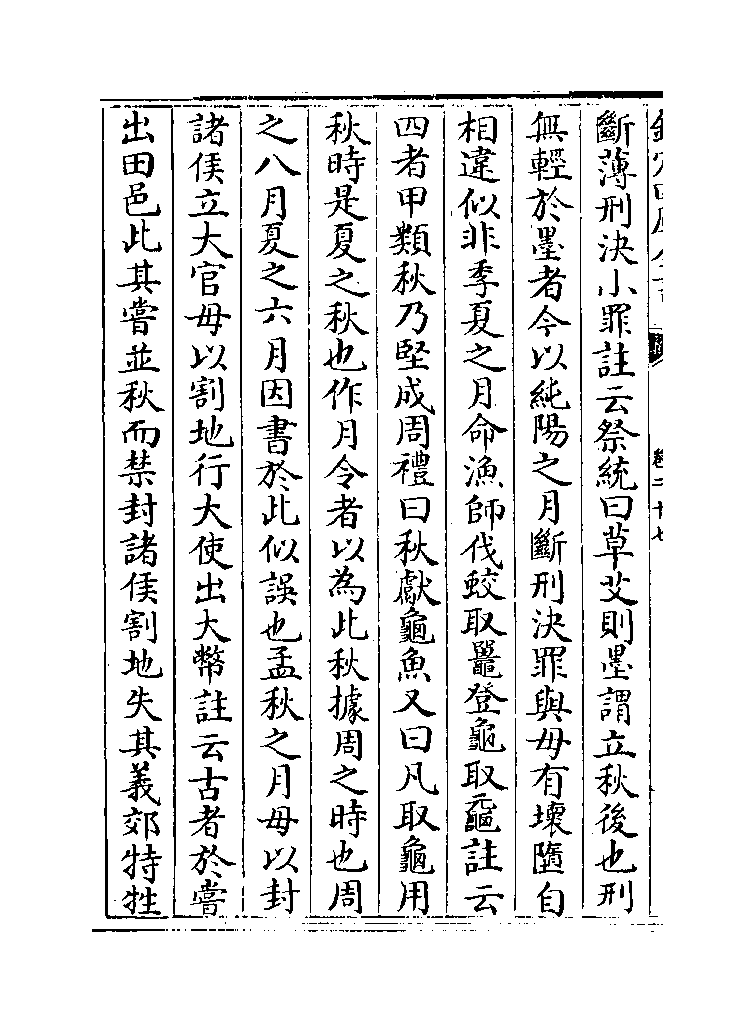 斷薄刑決小罪註云祭統曰草艾則墨謂立秋後也刑
無輕於墨者今以純陽之月斷刑決罪與毋有壞墮自
相違似非季夏之月命漁師伐蛟取鼉登龜取黿註云
四者甲類秋乃堅成周禮曰秋獻龜魚又曰凡取龜用
秋時是夏之秋也作月令者以為此秋據周之時也周
之八月夏之六月因書於此似誤也孟秋之月毋以封
諸侯立大官毋以割地行大使出大幣註云古者於嘗
出田邑此其嘗並秋而禁封諸侯割地失其義郊特牲
卷二十七